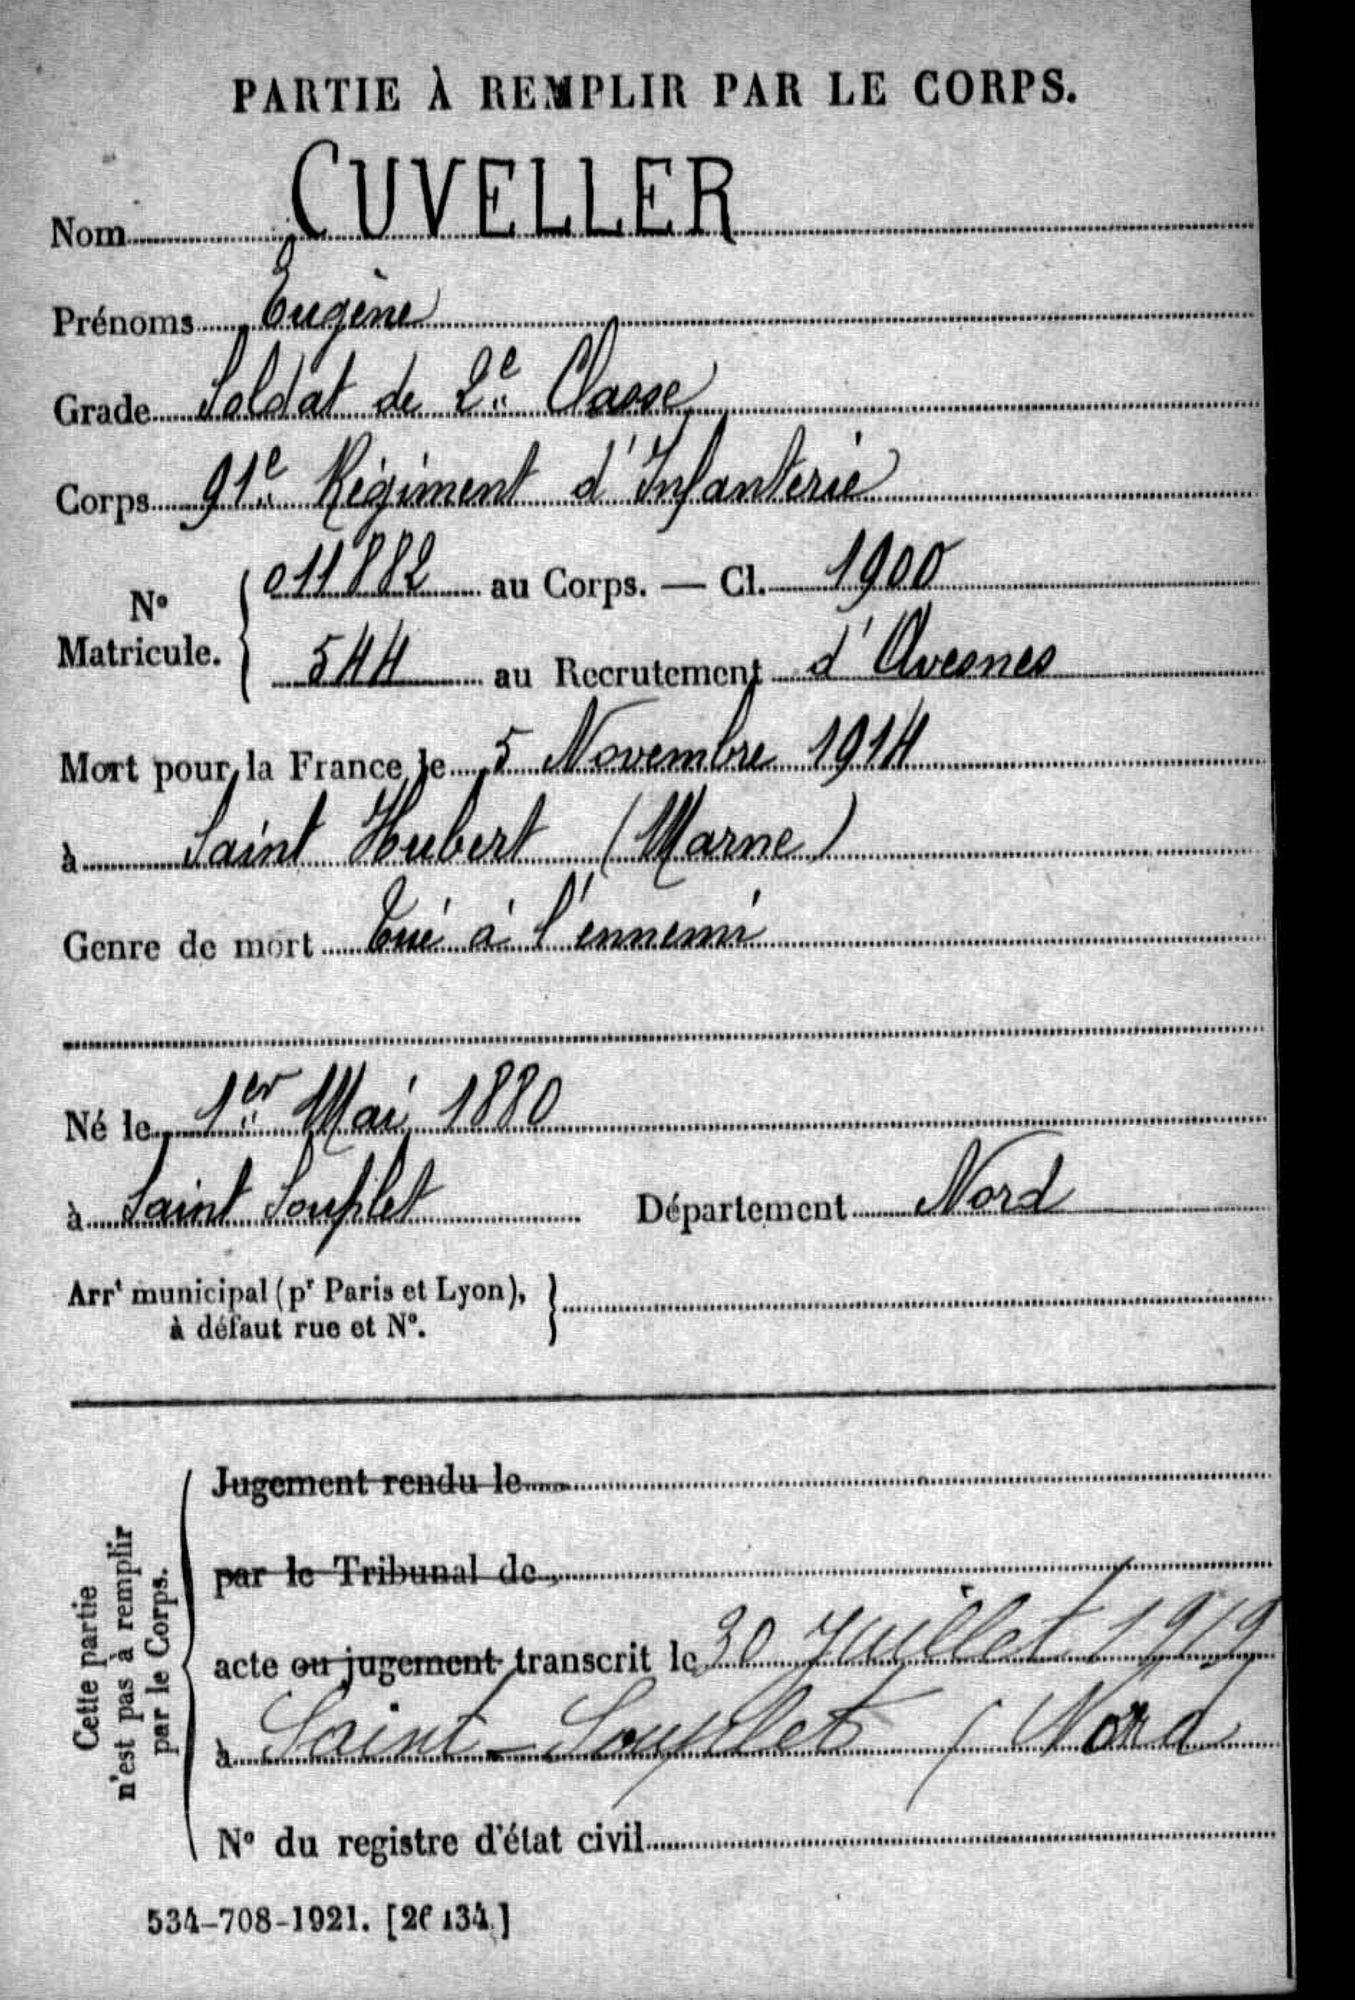 PARTIE À REMPLIR PAR LE CORPS.
Nom CUVELLER
Prénoms Eugène
Grade Soldat de 2e Classe
Corps 91e Régiment d'Infanterie
No Matricule. { 011882 au Corps. — Cl. 1900
544 au Recrutement d'Avesnes
Mort pour la France le 5 Novembre 1914
à Saint Hubert (Marne)
Genre de mort Tué à l'ennemi
Né le 1er Mai 1880
à Saint Souplet Département Nord
Arrt municipal (pr Paris et Lyon), }
à défaut rue et No.
Cette partie
n'est pas à remplir
par le Corps.
Jugement rendu le
par le Tribunal de
acte ou jugement transcrit le 30 Juillet 1919
à Saint-Souplet (Nord
No du registre d'état civil
534-708-1921. [26134.]